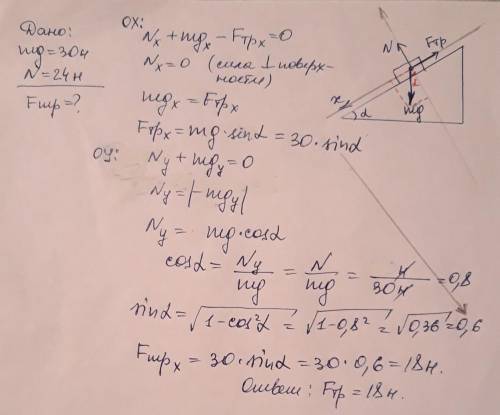 Дано:
mg = 30н
N = 24н
Fтр = ?
OX:
Nx + mgx - Fтрx = 0
Nx = 0 (сила ⊥ поверх-
ности)
mgx = Fтрx
Fтрx = mg · sinα = 30 · sinα
OY:
Ny + mgy = 0
Ny = |-mgy|
Ny = mg · cosα
cosα = Ny/mg = N/mg = н/30н = 0,8
sinα = √(1-cos²α) = √(1-0,8²) = √0,36 = 0,6
Fтрx = 30 · sinα = 30 · 0,6 = 18н.
Ответ: Fтр = 18н.
N
Fтр
x
α
mg